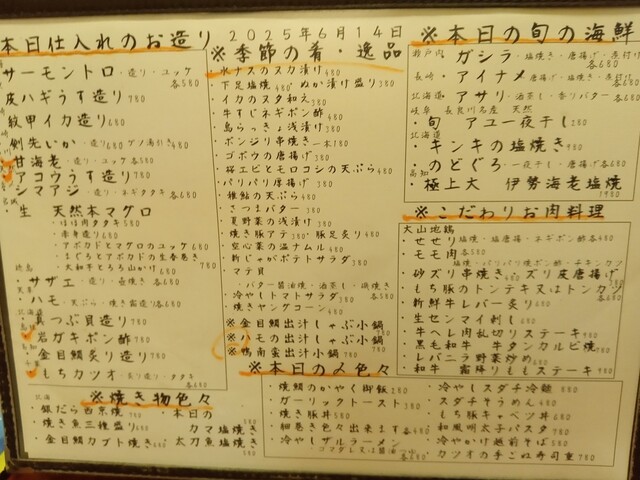 2025年6月14日
本日仕入れのお造り
サーモントロ・造り・ユッケ 各580
皮ハギうす造り780
紋甲イカ造り680
剣先いか・造り680 ゲソ湯引き480
甘海老・造り・ユッケ 各580
アコウうす造り780
シマアジ・造り・ネギタタキ各680
・生 天然本マグロ
・ほほ肉タタキ580
・赤身造り680
・アボカドとマグロのユッケ680
・まぐろとアボカドの生春巻き
・大和芋とろろ山かけ680
サザエ・造り・壺焼き 各680
ハモ・天ぷら・焼き霜造り各680
真つぶ貝造り780
岩ガキポン酢780
金目鯛炙り造り780
もちカツオ・炙り造り・タタキ 各680
※季節の肴・逸品
・水ナスのヌカ漬け480
・下足塩焼480 ・ぬか漬け盛り380
・イカのヌタ和え380
・牛すじネギポン酢480
・島らっきょ浅漬け380
・ボンジリ串焼き一本180
・ゴボウの唐揚げ380
・桜エビとモロコシの天ぷら480
・パリパリ厚揚げ380
・稚鮎の天ぷら480
・さつまバター380
・夏野菜の浅漬け380
・焼き豚アテ380・豚足炙り480
・空心菜の温ナムル480
・新じゃがポテトサラダ380
・マテ貝
・バター醤油焼・油茶し・磯焼き 各580
・冷やしトマトサラダ380
・焼きヤングコーン480
※金目鯛出汁しゃぶ小鍋780
※ハモの出汁しゃぶ小鍋780
※鴨南蛮出汁小鍋780
※本日の旬の海鮮
瀬戸内 ガシラ・塩焼き・唐揚げ・煮付け 各680
長崎 アイナメ・唐揚げ・塩焼き・煮付け 各680
北海道 アサリ・油茶し・香りバター 各580
岐阜 長良川名産 天然
・旬 アユ一夜干し580
北海道
・キンキの塩焼き980
・のどぐろ・一夜干し・唐揚げ 各980
高知
・極上大 伊勢海老塩焼1980
※こだわりお肉料理
大山地鶏
・せせり・塩焼・塩唐揚・ネギポン酢各480
・モモ肉 各580
・塩焼・パリパリ焼ポン酢・チキンカツ
・砂ズリ串焼き480・ズリ皮唐揚げ380
・もち豚のトンテキ又はトンカツ
・新鮮牛レバー炙り480
・生センマイ刺し480
・牛ヘレ肉乱切りステーキ980
・黒毛和牛 牛タンカルビ焼780
・レバニラ野菜炒め480
・和牛 霜降りももステーキ980
※焼き物色々
・銀だら西京焼780 ・本日の
・焼き魚三種盛り980 カマ塩焼き
・金目鯛カブト焼き680 ・太刀魚塩焼き
※本日の〆色々
・焼鯛のかやく御飯280
・ガーリックトースト380
・焼き豚丼580
・細巻き色々出来ます各480
・冷やしザルラーメン
・ゴマダレ又は醤油つゆ 各680
・冷やしスダチ冷麺580
・スダチそうめん480
・もち豚キャベツ丼680
・和風明太子パスタ780
・冷やかけ越前そば580
・カツオの手こね寿司重780